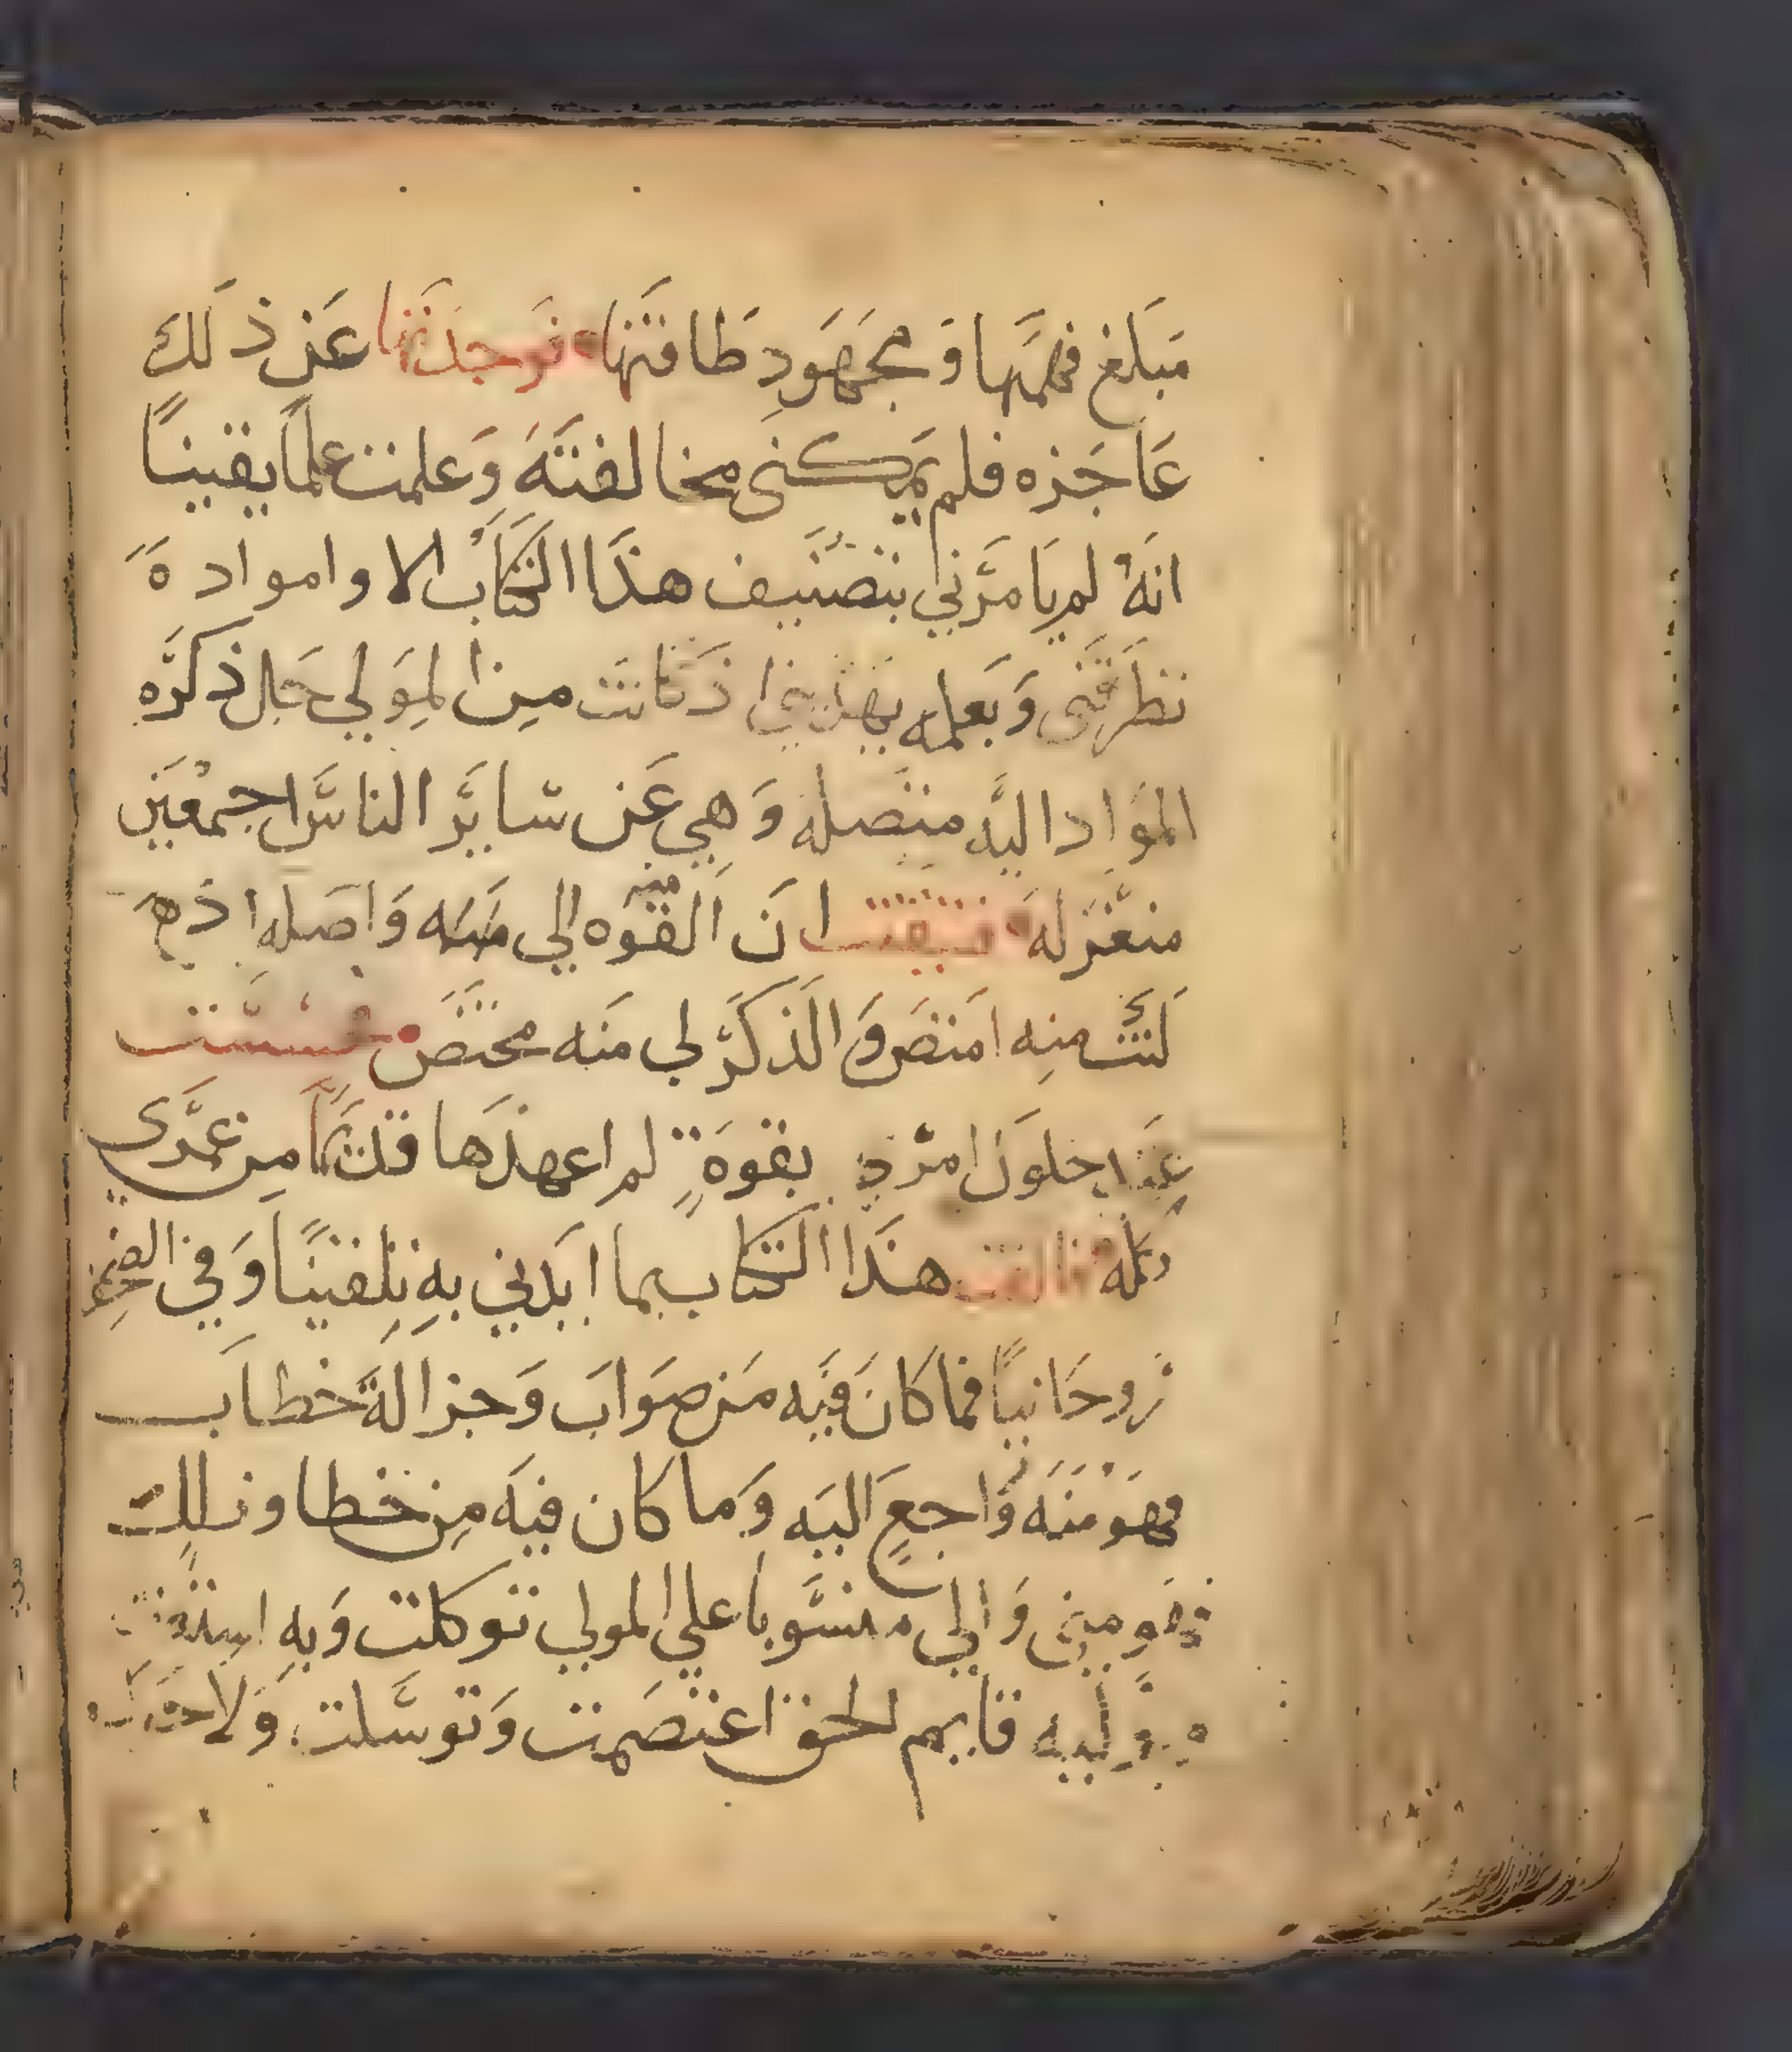 مَبَلَغ فهمَّهَا وَ مجَهَودِ طَا قتهَا فوَجدَتَها عَن ذ لَكَ
عَاجَزه فلم يَمكنىَ مخا لفتَهَ وَعلمت علمَاَ يقينًا
انهَ لم يَا مرَني بتصَنيف هذَا الكتاَب الا وامواد هَ
نظرتَنى وَ بَعلمه اذ كَانتَ من المَولي جَل ذكرَه
الموَاد اليَه متصَله وَهي عَن سَايَر الناسَ اجمعَين
منعَزله فتيقنت ان اَلقوَه الي منه وَاصَله اذ هَ
لَكَنت منِه امتَص وَ الَذكَر لي منَه مختَصَ
خلوَ امرَي بقوَةٍ لم اعهدَها قدَيمًا من عمَرَى
كله فالفت هذَا الكتاب بما ايَدني بهِ تلِقينًا وَ في
رَوحَانيًا فما كَانَ فيَه مَن صَوابَ وَ جزالةَ خطابَ
فهوَ منَه وَاجعِ اليَه وَما كان فيَه مِن خطا وزلل
فهَو مِني وَالي منسَوبا علي المولي توكلت وَبهِ استعنت
وَ وليه قايم الحق اعتصَمت وَتوسَلت وَلا حوَل